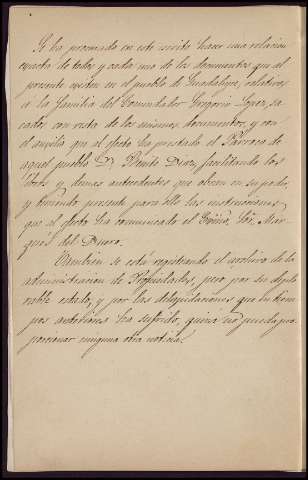 Se ha procurado en este escrito hacer una relacion
exacta de todos y cada uno de los documentos que al
presente existen en el pueblo de Guadalupe, relativos
á la familia del Comendador Gregorio Lopez, sa-
cados con vista de los mismos documentos, y con
el auxilio que al efecto ha prestado el Párroco de
aquel pueblo Dn. Benito Diaz, facilitando los
libros y demas antecedentes que obran en su poder,
y teniendo presente para ello las instrucciones
que al efecto ha comunicado el Excmo. Sor. Mar-
qués del Duero.
Tambien se está registrando el archivo de la
administracion de Propiedades, pero por su deplo-
rable estado, y por las delapidaciones que en tiem-
pos anteriores ha sufrido, quizá no pueda pro-
porcionar ninguna otra noticia.